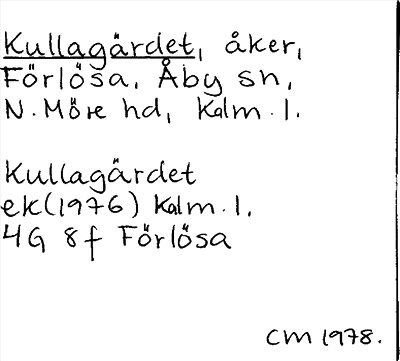 Kullagärdet, åker,
Förlösa, Åby sn,
N. Möre hd, Kalm. l.
Kullagärdet
ek(1976) Kalm. l.
4G 8f Förlösa
CM 1978.